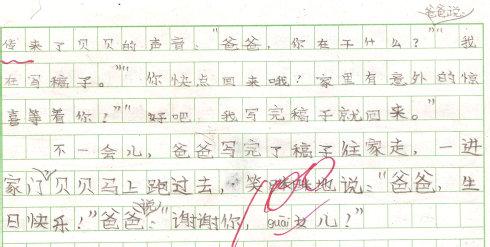 爸爸说:
传来了贝贝的声音:"爸爸,你在干什么?""我
在写稿子。""你快点回来哦!家里有意外的惊
喜等着你!""好吧,我写完稿子就回来。"
不一会儿,爸爸写完了稿子往家走,一进
家门,贝贝马上跑过去,笑眯眯地说:"爸爸,生
日快乐!"爸爸说:"谢谢你,guāi女儿!"
100